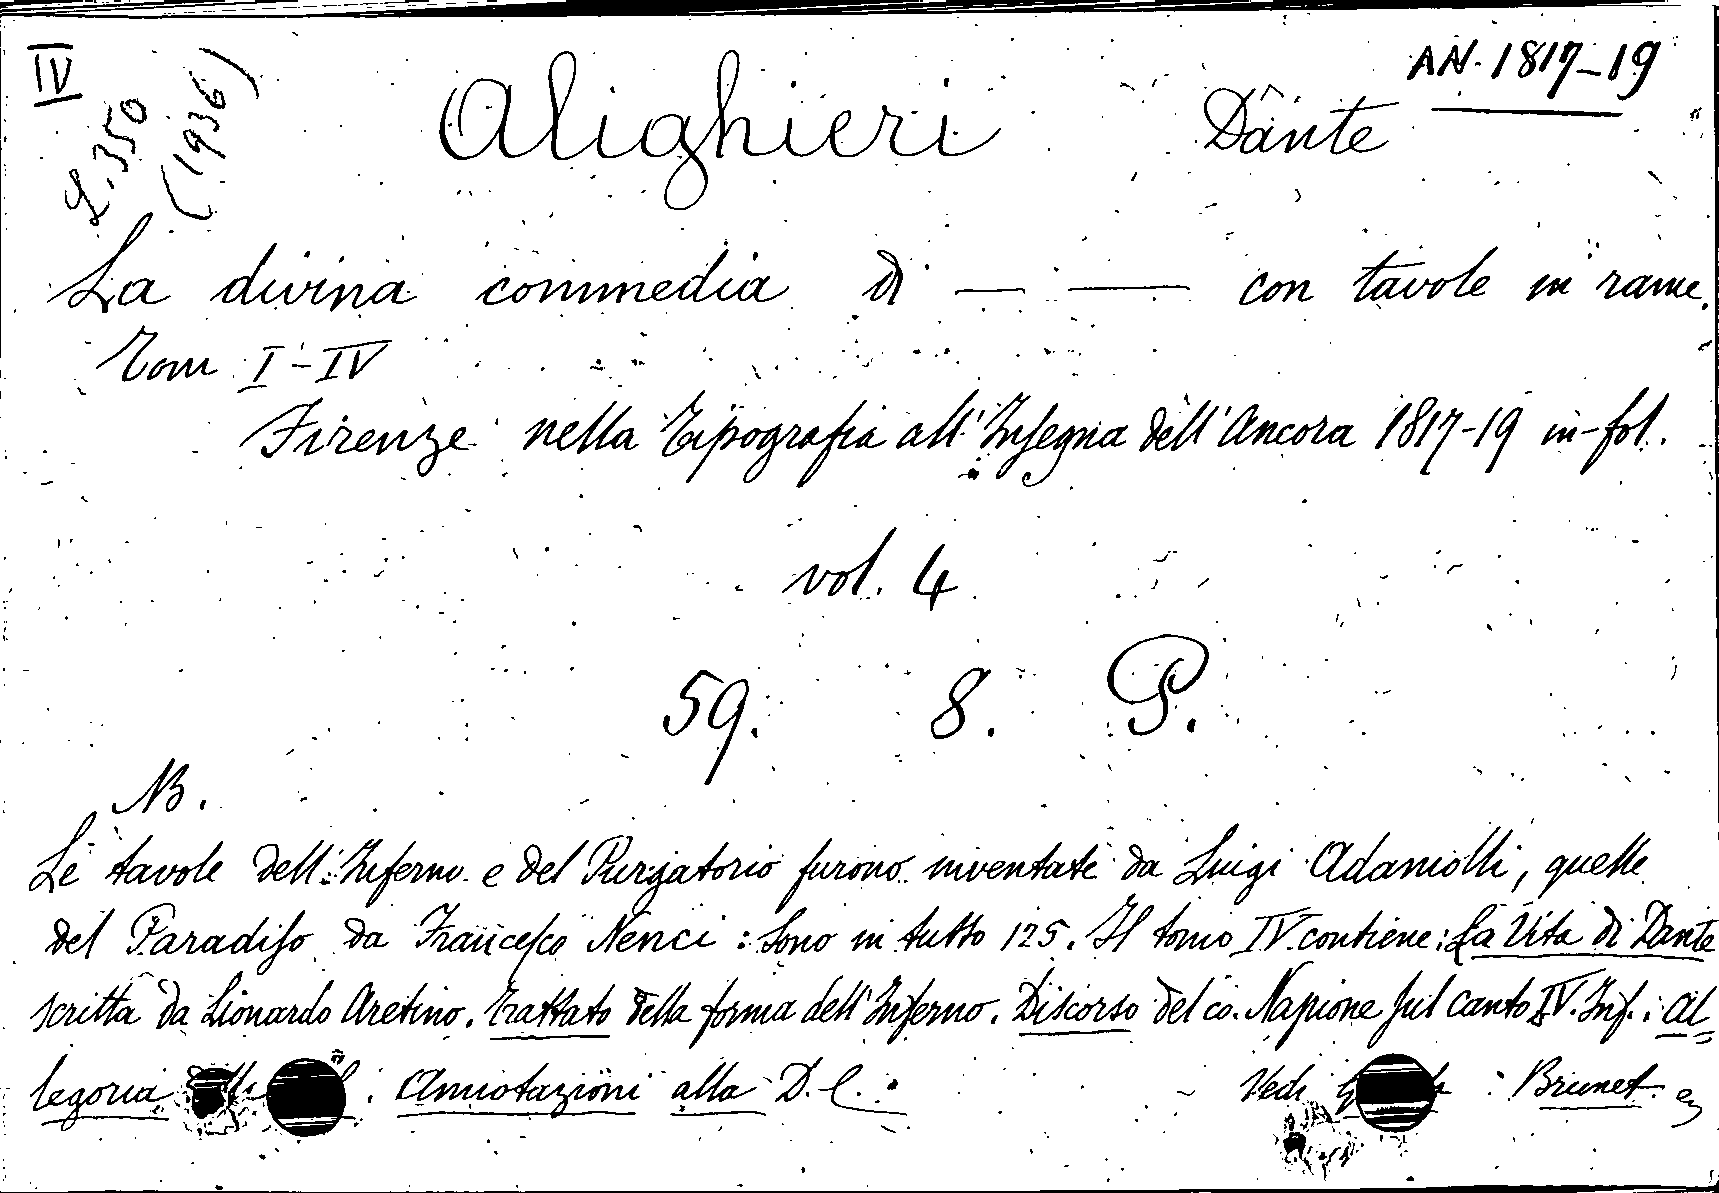 IV
L. 350
(1936)
AN. 1817-19
Alighieri Dante
La divina commedia di — — con tavole in rame.
Tom I-IV
Firenze nella Tipografia all'Insegna dell'Ancora 1817-19 in-fol.
vol. 4
59. 8. P.
NB.
Le tavole dell'Inferno e del Purgatorio furono inventate da Luigi Adamolli, quelle
del Paradiso da Francesco Nenci: sono in tutto 125. Il tomo IV contiene: La Vita di Dante
scritta da Lionardo Aretino. Trattato della forma dell'Inferno. Discorso del co. Napione sul canto IV. Inf.: Al-
legoria Annotazioni alla D. C.
Vedi : Brunet.